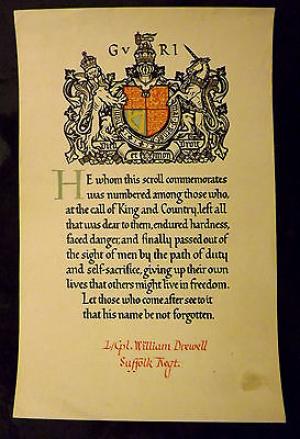 GVRI
HE whom this scroll commemorates
was numbered among those who,
at the call of King and Country, left all
that was dear to them, endured hardness,
faced danger, and finally passed out of
the sight of men by the path of duty
and self-sacrifice, giving up their own
lives that others might live in freedom.
Let those who come after see to it
that his name be not forgotten.
L/Cpl. William Drewell
Suffolk Regt.